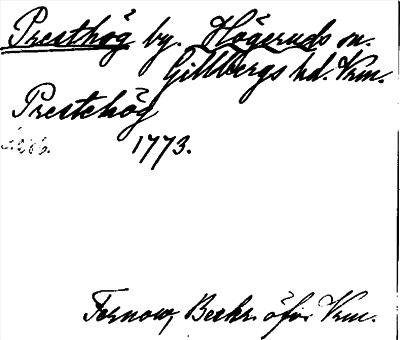 Presthög by. Högeruds sn.
Gillbergs hd. Vrm.
Prestehög
1773.
Fernow, Beskr. öfver Vrm.